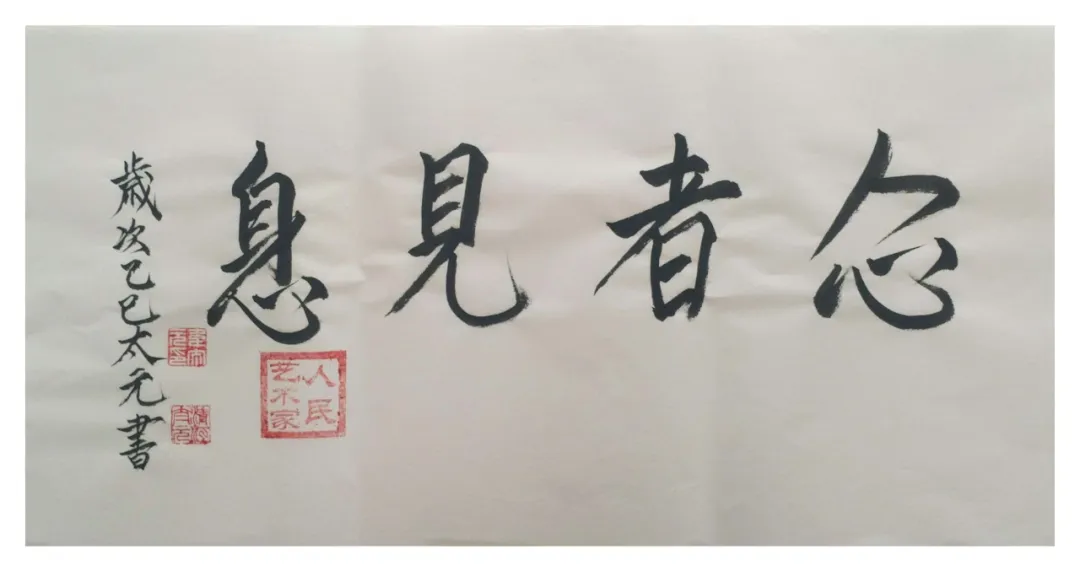 念者見息
歲次乙巳太元書
人民
艺术家